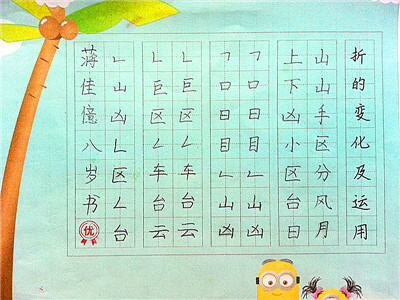 折的变化及运用
山山手区分风月
上下凶小区台日
𠃍口日目凵山凶
𠃍口日目凵山凶
𠃊巨区𠃋车台云
𠃊巨区𠃋车台云
𠃊山凶𠃊区𠃋台
佳憶八岁书
优